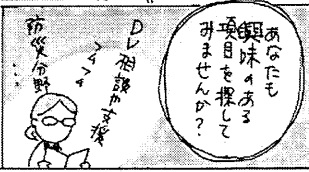 あなたも
興味のある
項目を探して
みませんか?
DV相談か支援
フムフム
防災分野
…